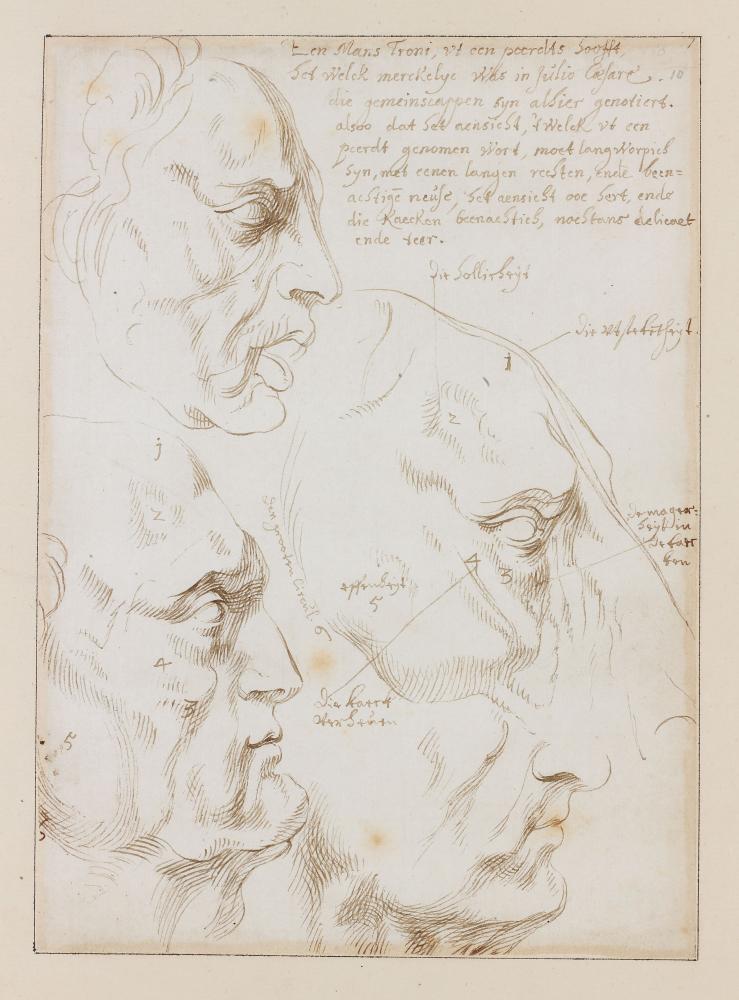 Een Mans Troni, vt een peerdts hooft,
het Welck merckelyc Was in Julio Cæsare. 10
die gemeinscappen syn alhier genotiert.
alsoo dat het aensicht, 't Welck vt een
peerdt genomen Wort, moet langWorpich
syn, met eenen langen rechten, ende been=
achtigē neuse, het aensicht ooc hert, ende
die Kaecken beenachtich, nochtans delicaet
ende teer.
die hollicheyt
die
1
2
de mager=
heyt in
de kaec
ken
4
3
effenheyt
5
den grooten Circül 6
die kaeck
verheven
j
2
4
3
5